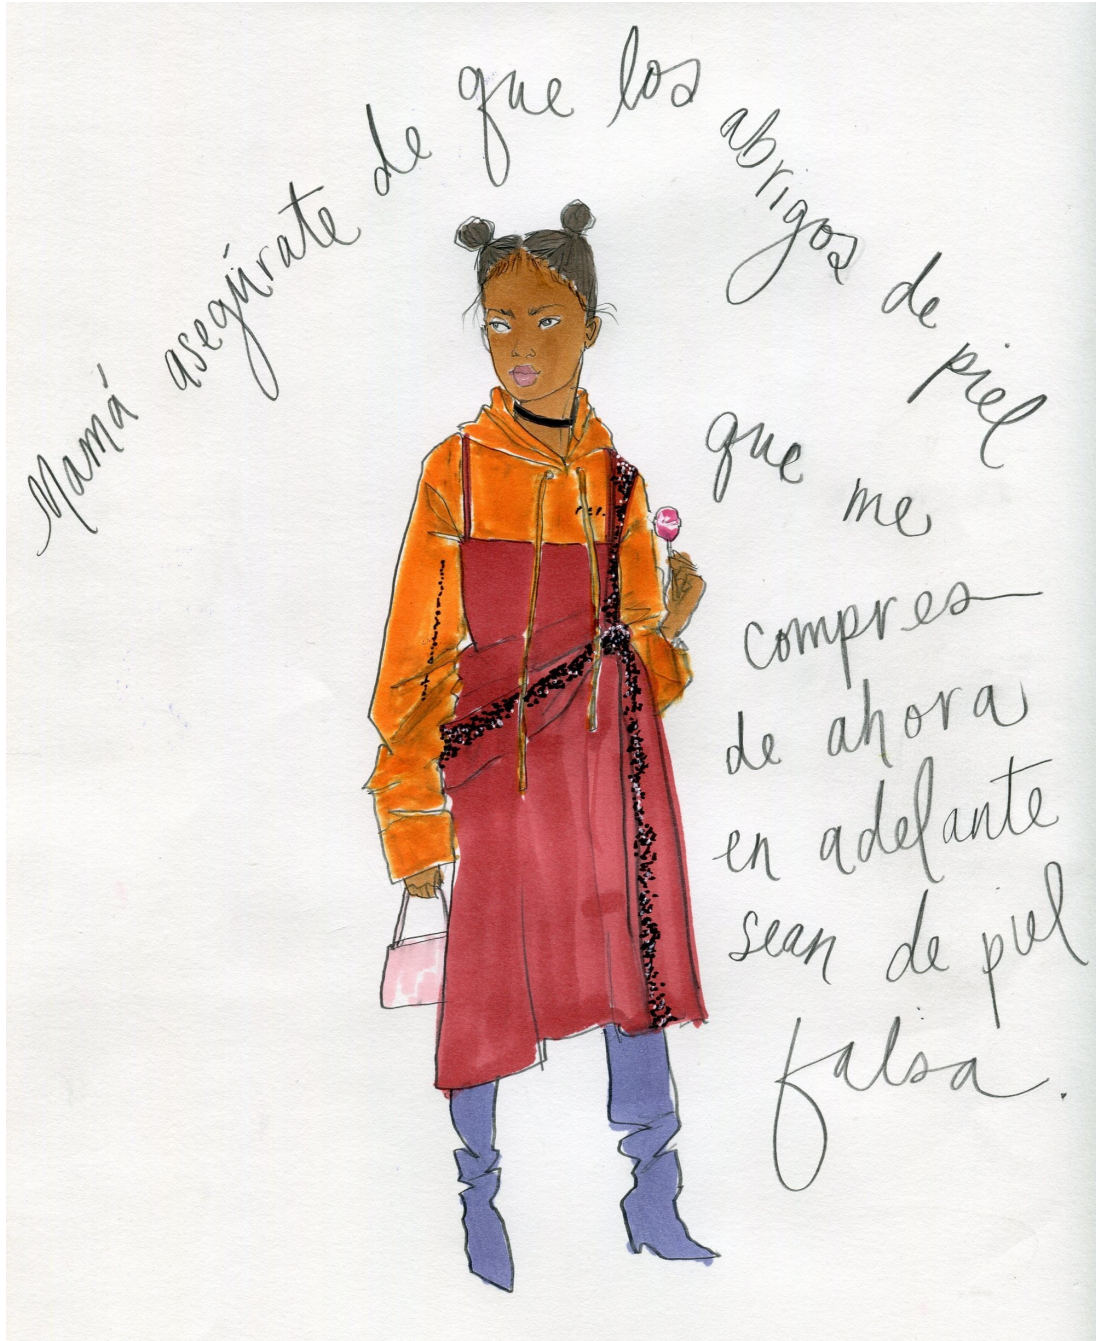 Mamá asegúrate de que los abrigos de piel
que me
compres
de ahora
en adelante
sean de piel
falsa.